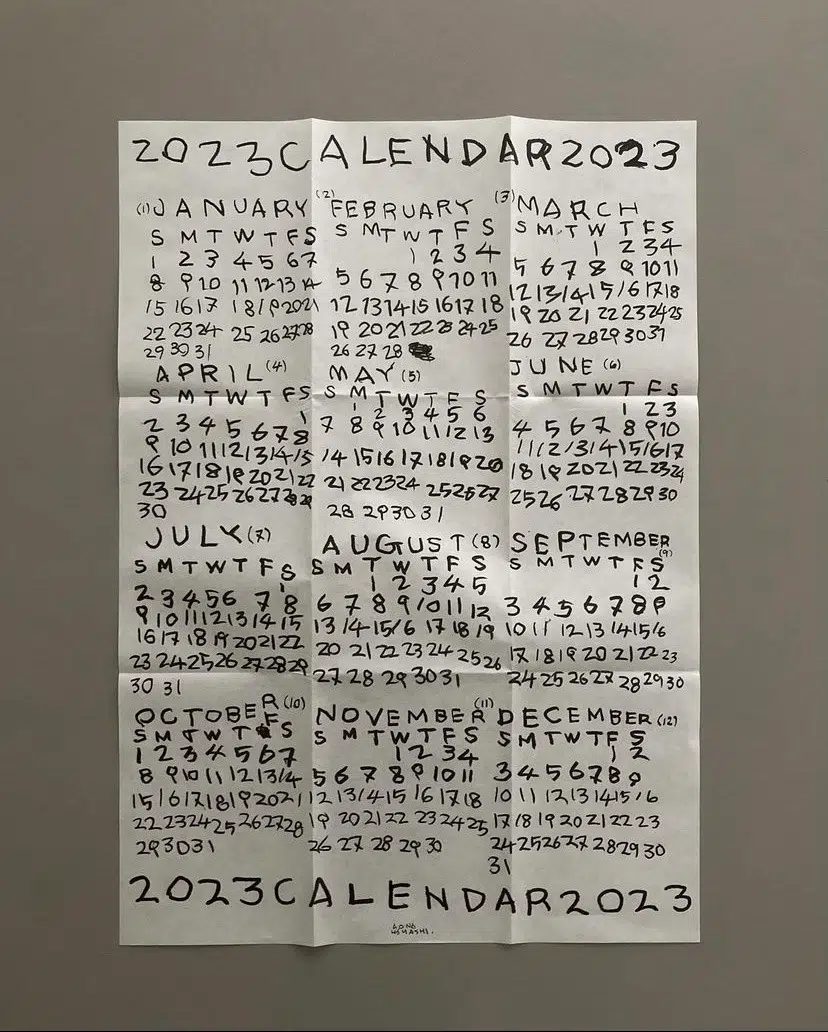 2023CALENDAR2023
(1)JANUARY
S M T W T F S
1 2 3 4 5 6 7
8 9 10 11 12 13 14
15 16 17 18 19 20 21
22 23 24 25 26 27 28
29 30 31
(2)FEBRUARY
S M T W T F S
1 2 3 4
5 6 7 8 9 10 11
12 13 14 15 16 17 18
19 20 21 22 23 24 25
26 27 28
(3)MARCH
S M T W T F S
1 2 3 4
5 6 7 8 9 10 11
12 13 14 15 16 17 18
19 20 21 22 23 24 25
26 27 28 29 30 31
APRIL(4)
S M T W T F S
1
2 3 4 5 6 7 8
9 10 11 12 13 14 15
16 17 18 19 20 21 22
23 24 25 26 27 28 29
30
MAY(5)
S M T W T F S
1 2 3 4 5 6
7 8 9 10 11 12 13
14 15 16 17 18 19 20
21 22 23 24 25 26 27
28 29 30 31
JUNE(6)
S M T W T F S
1 2 3
4 5 6 7 8 9 10
11 12 13 14 15 16 17
18 19 20 21 22 23 24
25 26 27 28 29 30
JULY(7)
S M T W T F S
1
2 3 4 5 6 7 8
9 10 11 12 13 14 15
16 17 18 19 20 21 22
23 24 25 26 27 28 29
30 31
AUGUST(8)
S M T W T F S
1 2 3 4 5
6 7 8 9 10 11 12
13 14 15 16 17 18 19
20 21 22 23 24 25 26
27 28 29 30 31
SEPTEMBER(9)
S M T W T F S
1 2
3 4 5 6 7 8 9
10 11 12 13 14 15 16
17 18 19 20 21 22 23
24 25 26 27 28 29 30
OCTOBER(10)
S M T W T F S
1 2 3 4 5 6 7
8 9 10 11 12 13 14
15 16 17 18 19 20 21
22 23 24 25 26 27 28
29 30 31
NOVEMBER(11)
S M T W T F S
1 2 3 4
5 6 7 8 9 10 11
12 13 14 15 16 17 18
19 20 21 22 23 24 25
26 27 28 29 30
DECEMBER(12)
S M T W T F S
1 2
3 4 5 6 7 8 9
10 11 12 13 14 15 16
17 18 19 20 21 22 23
24 25 26 27 28 29 30
31
2023CALENDAR2023